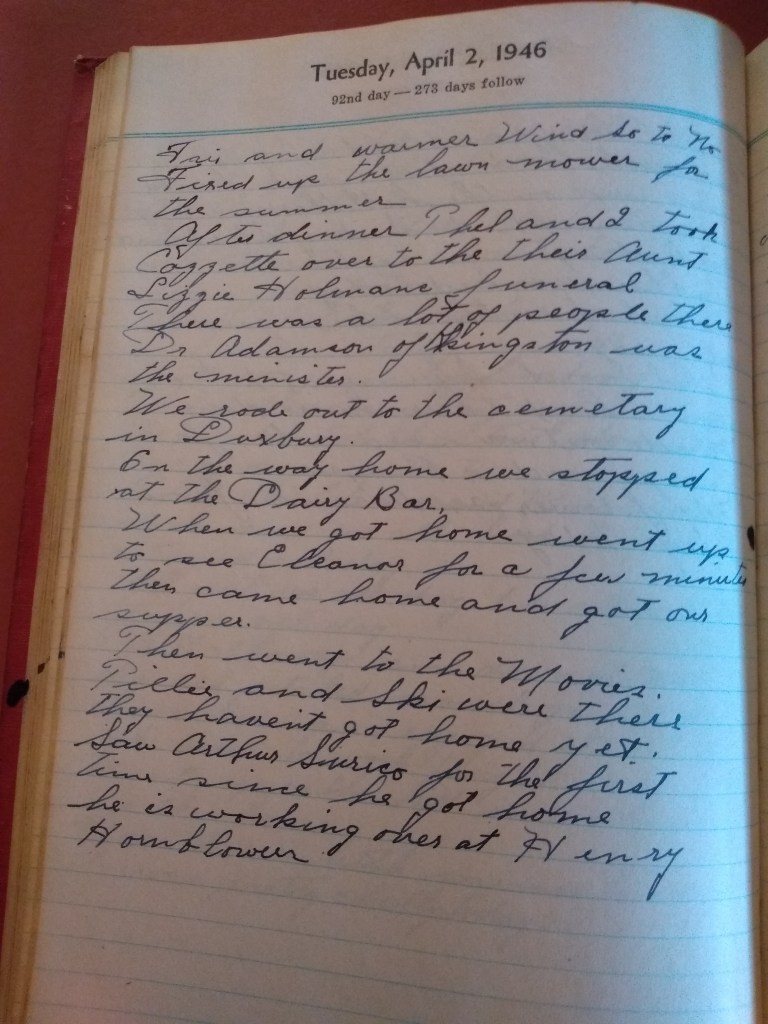 Tuesday, April 2, 1946
92nd day — 273 days follow
Fair and warmer Wind So to No
Fixed up the lawn mower for
the summer
After dinner Phel and I took
over to the their Aunt
Lizzie Holmans funeral
There was a lot of people there
Dr Adamson of Kingston was
the minister.
We rode out to the cemetary
in Duxbury.
On the way home we stopped
at the Dairy Bar,
When we got home went up
to see Eleanor for a few minutes
then came home and got our
supper.
Then went to the Movies.
and Ski were there
they havent got home yet.
Saw Arthur for the first
time since he got home
he is working over at Henry
Hornblower